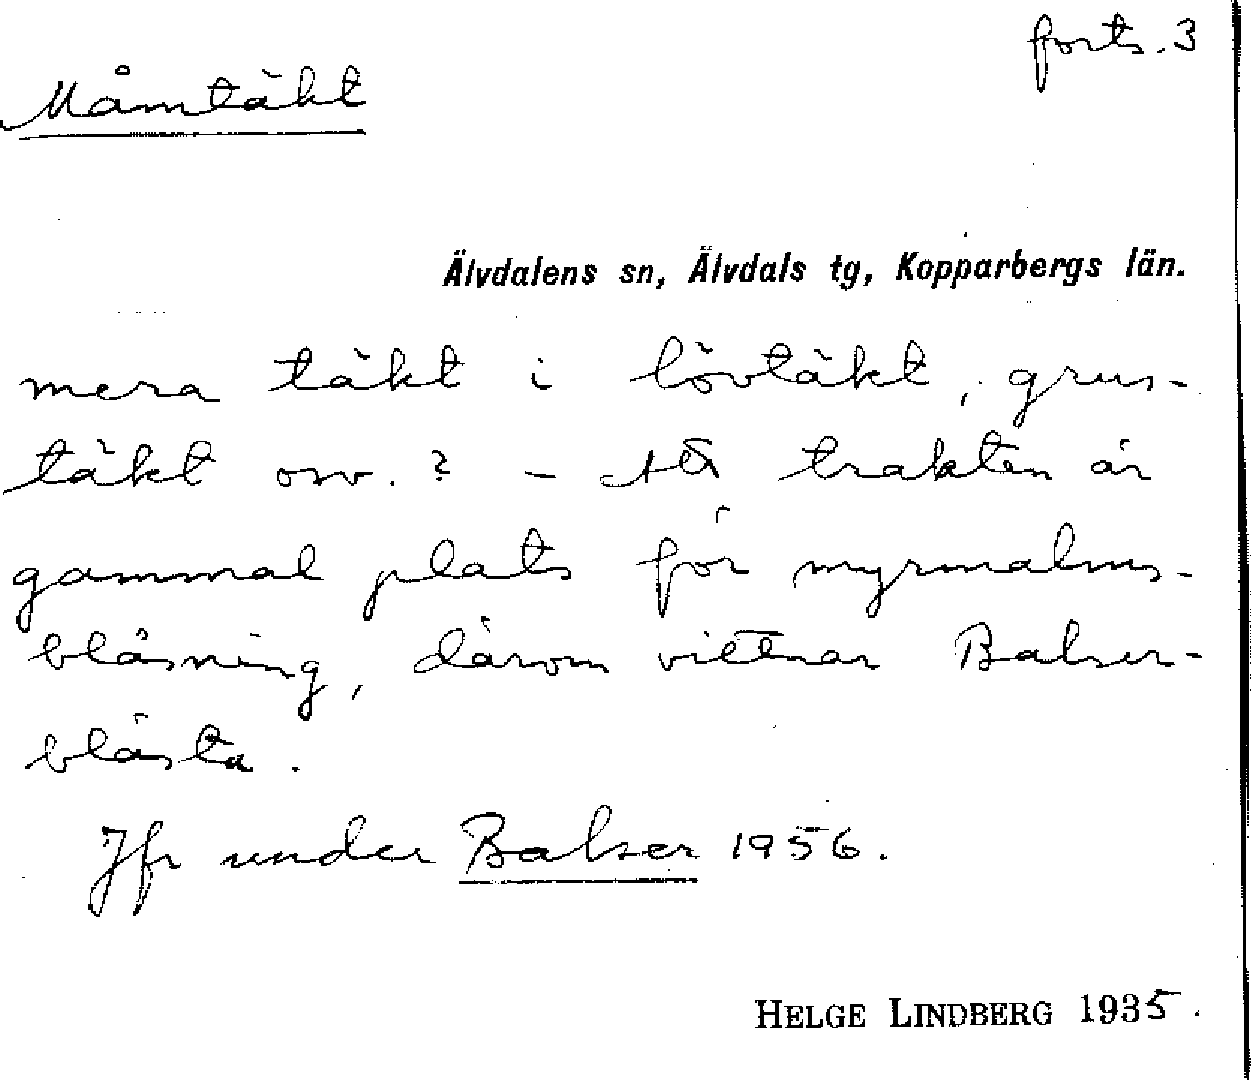 forts. 3
Måmtäkt
Älvdalens sn, Älvdals tg, Kopparbergs län.
mera täkt i lövtäkt, grus-
täkt osv. ? – Att trakten är
gammal plats för myrmalms-
blåsning, därom vittnar Balser-
blåsta.
Jfr under Balser 1956.
HELGE LINDBERG 1935.